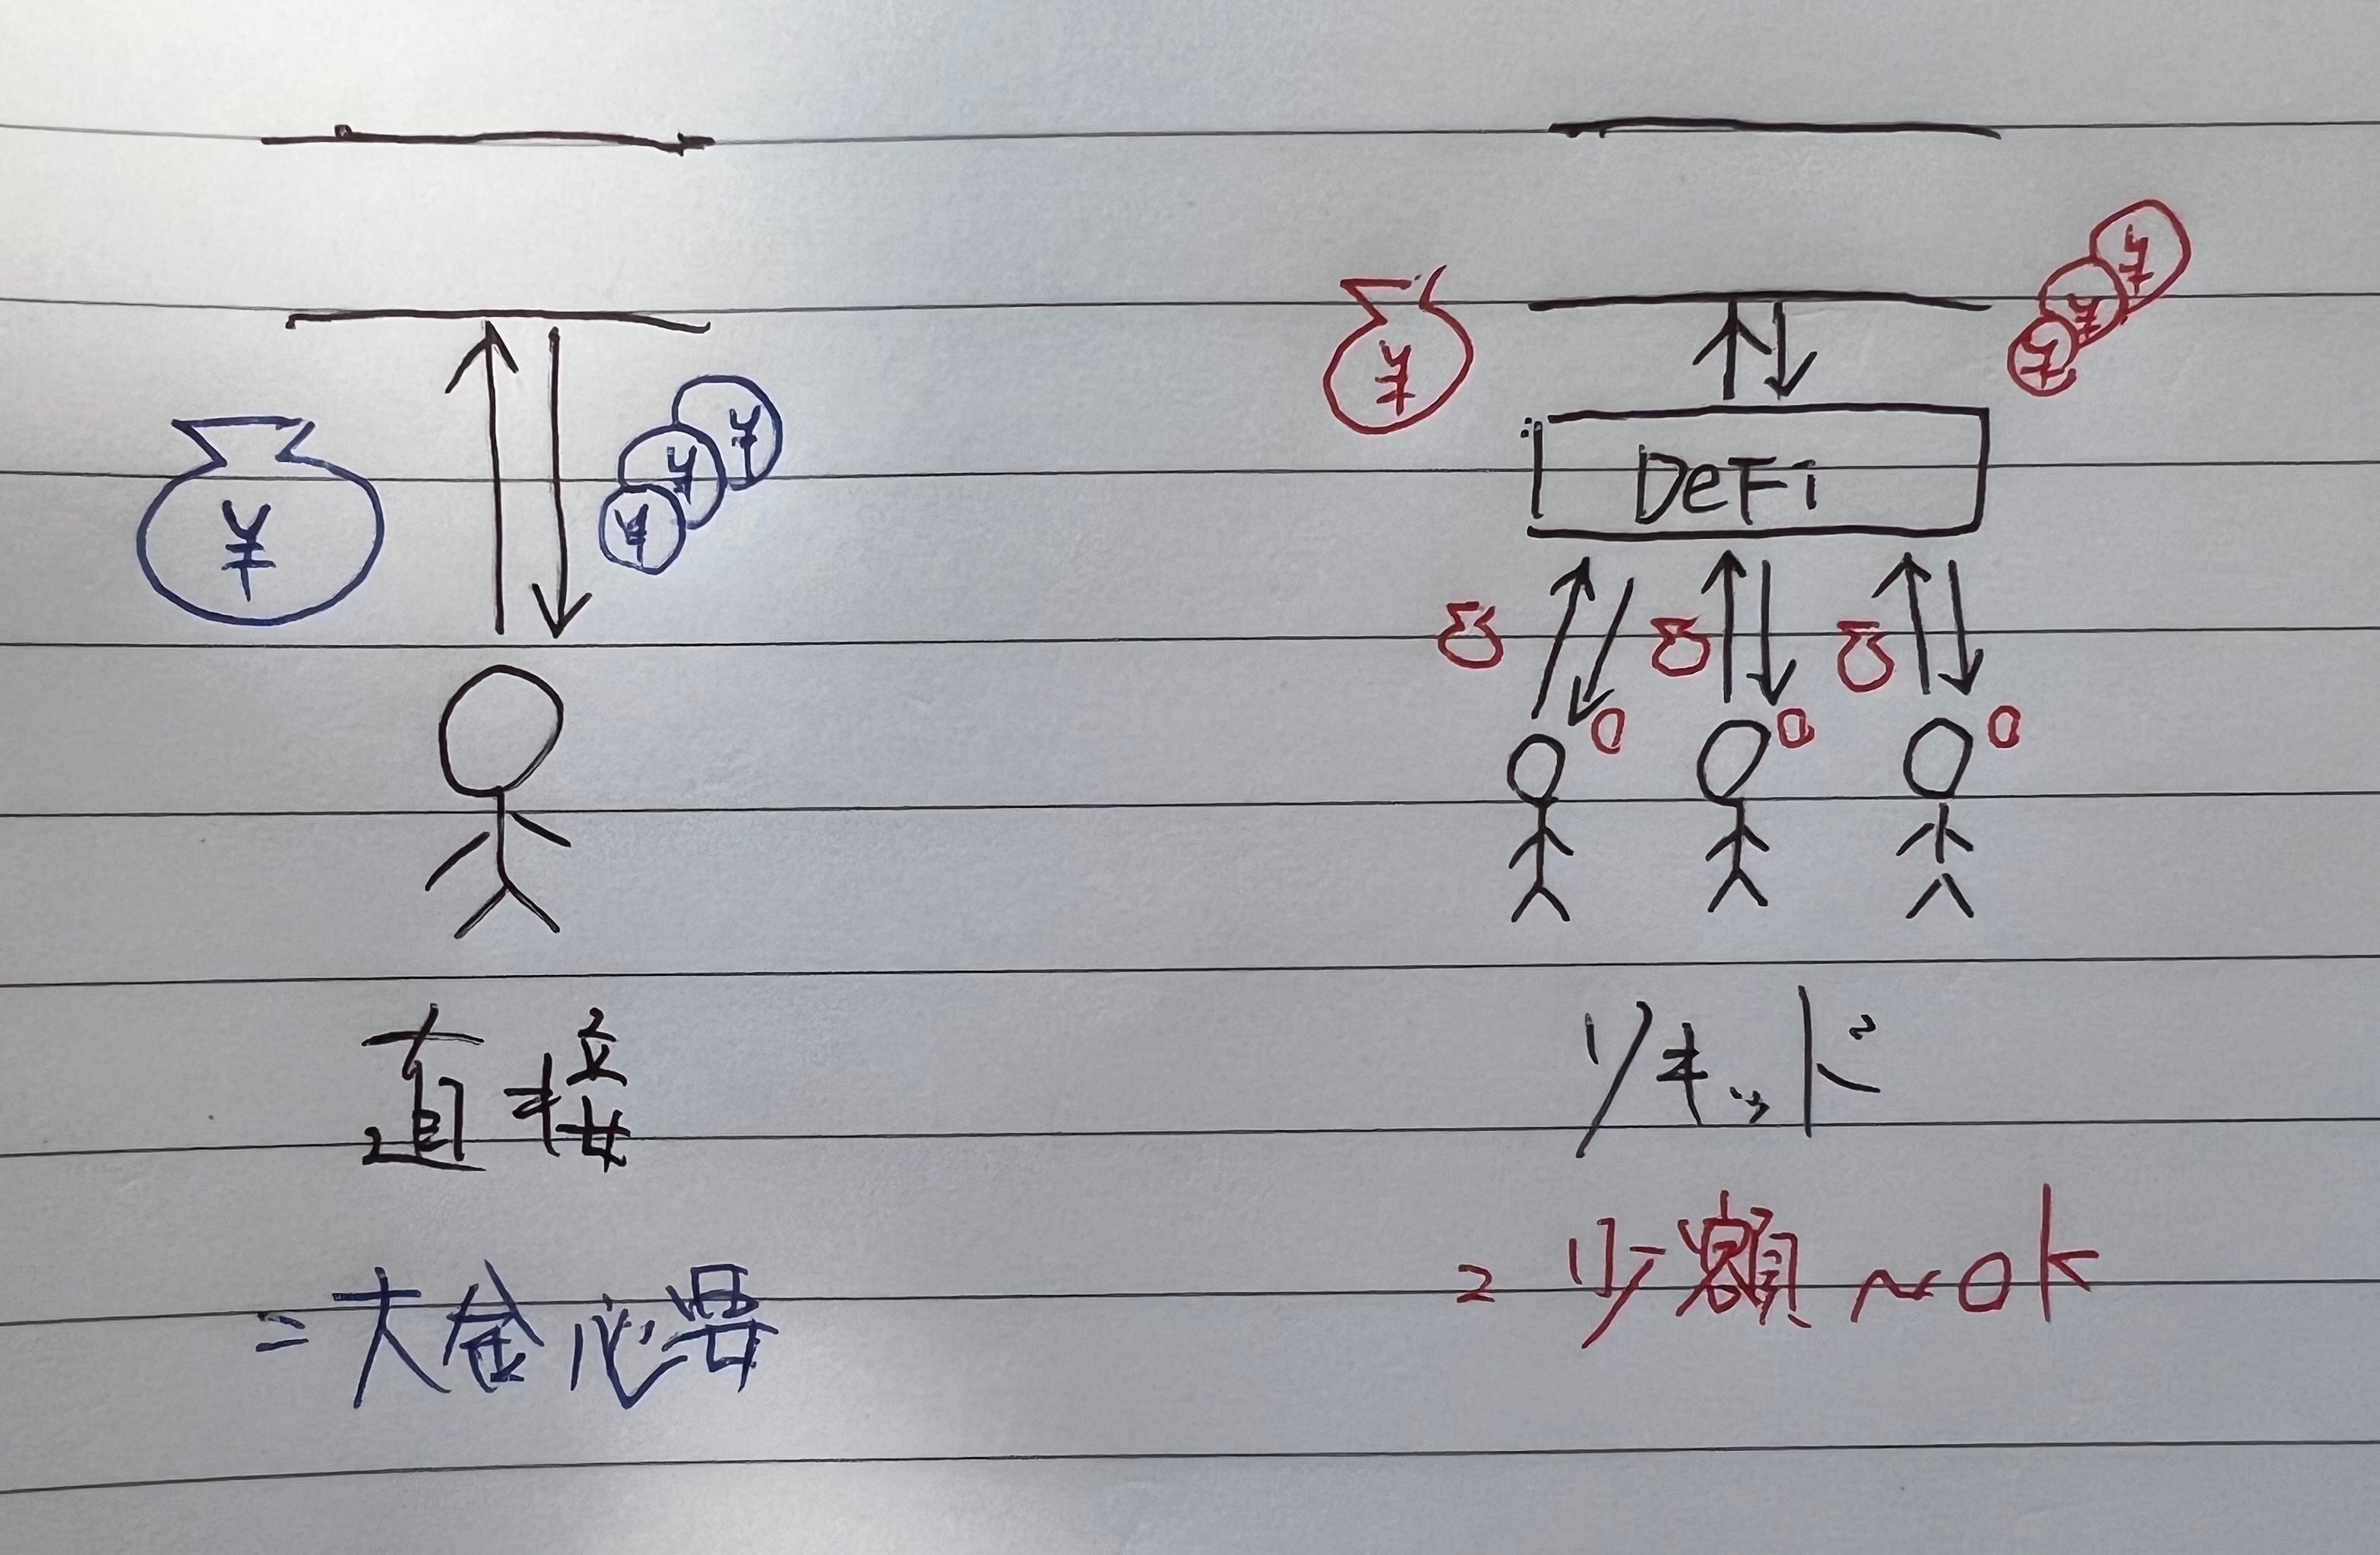 ¥
¥
¥
¥
¥
¥
¥
¥
DeFi
直接
リキッド
=大金必要
=少額~OK